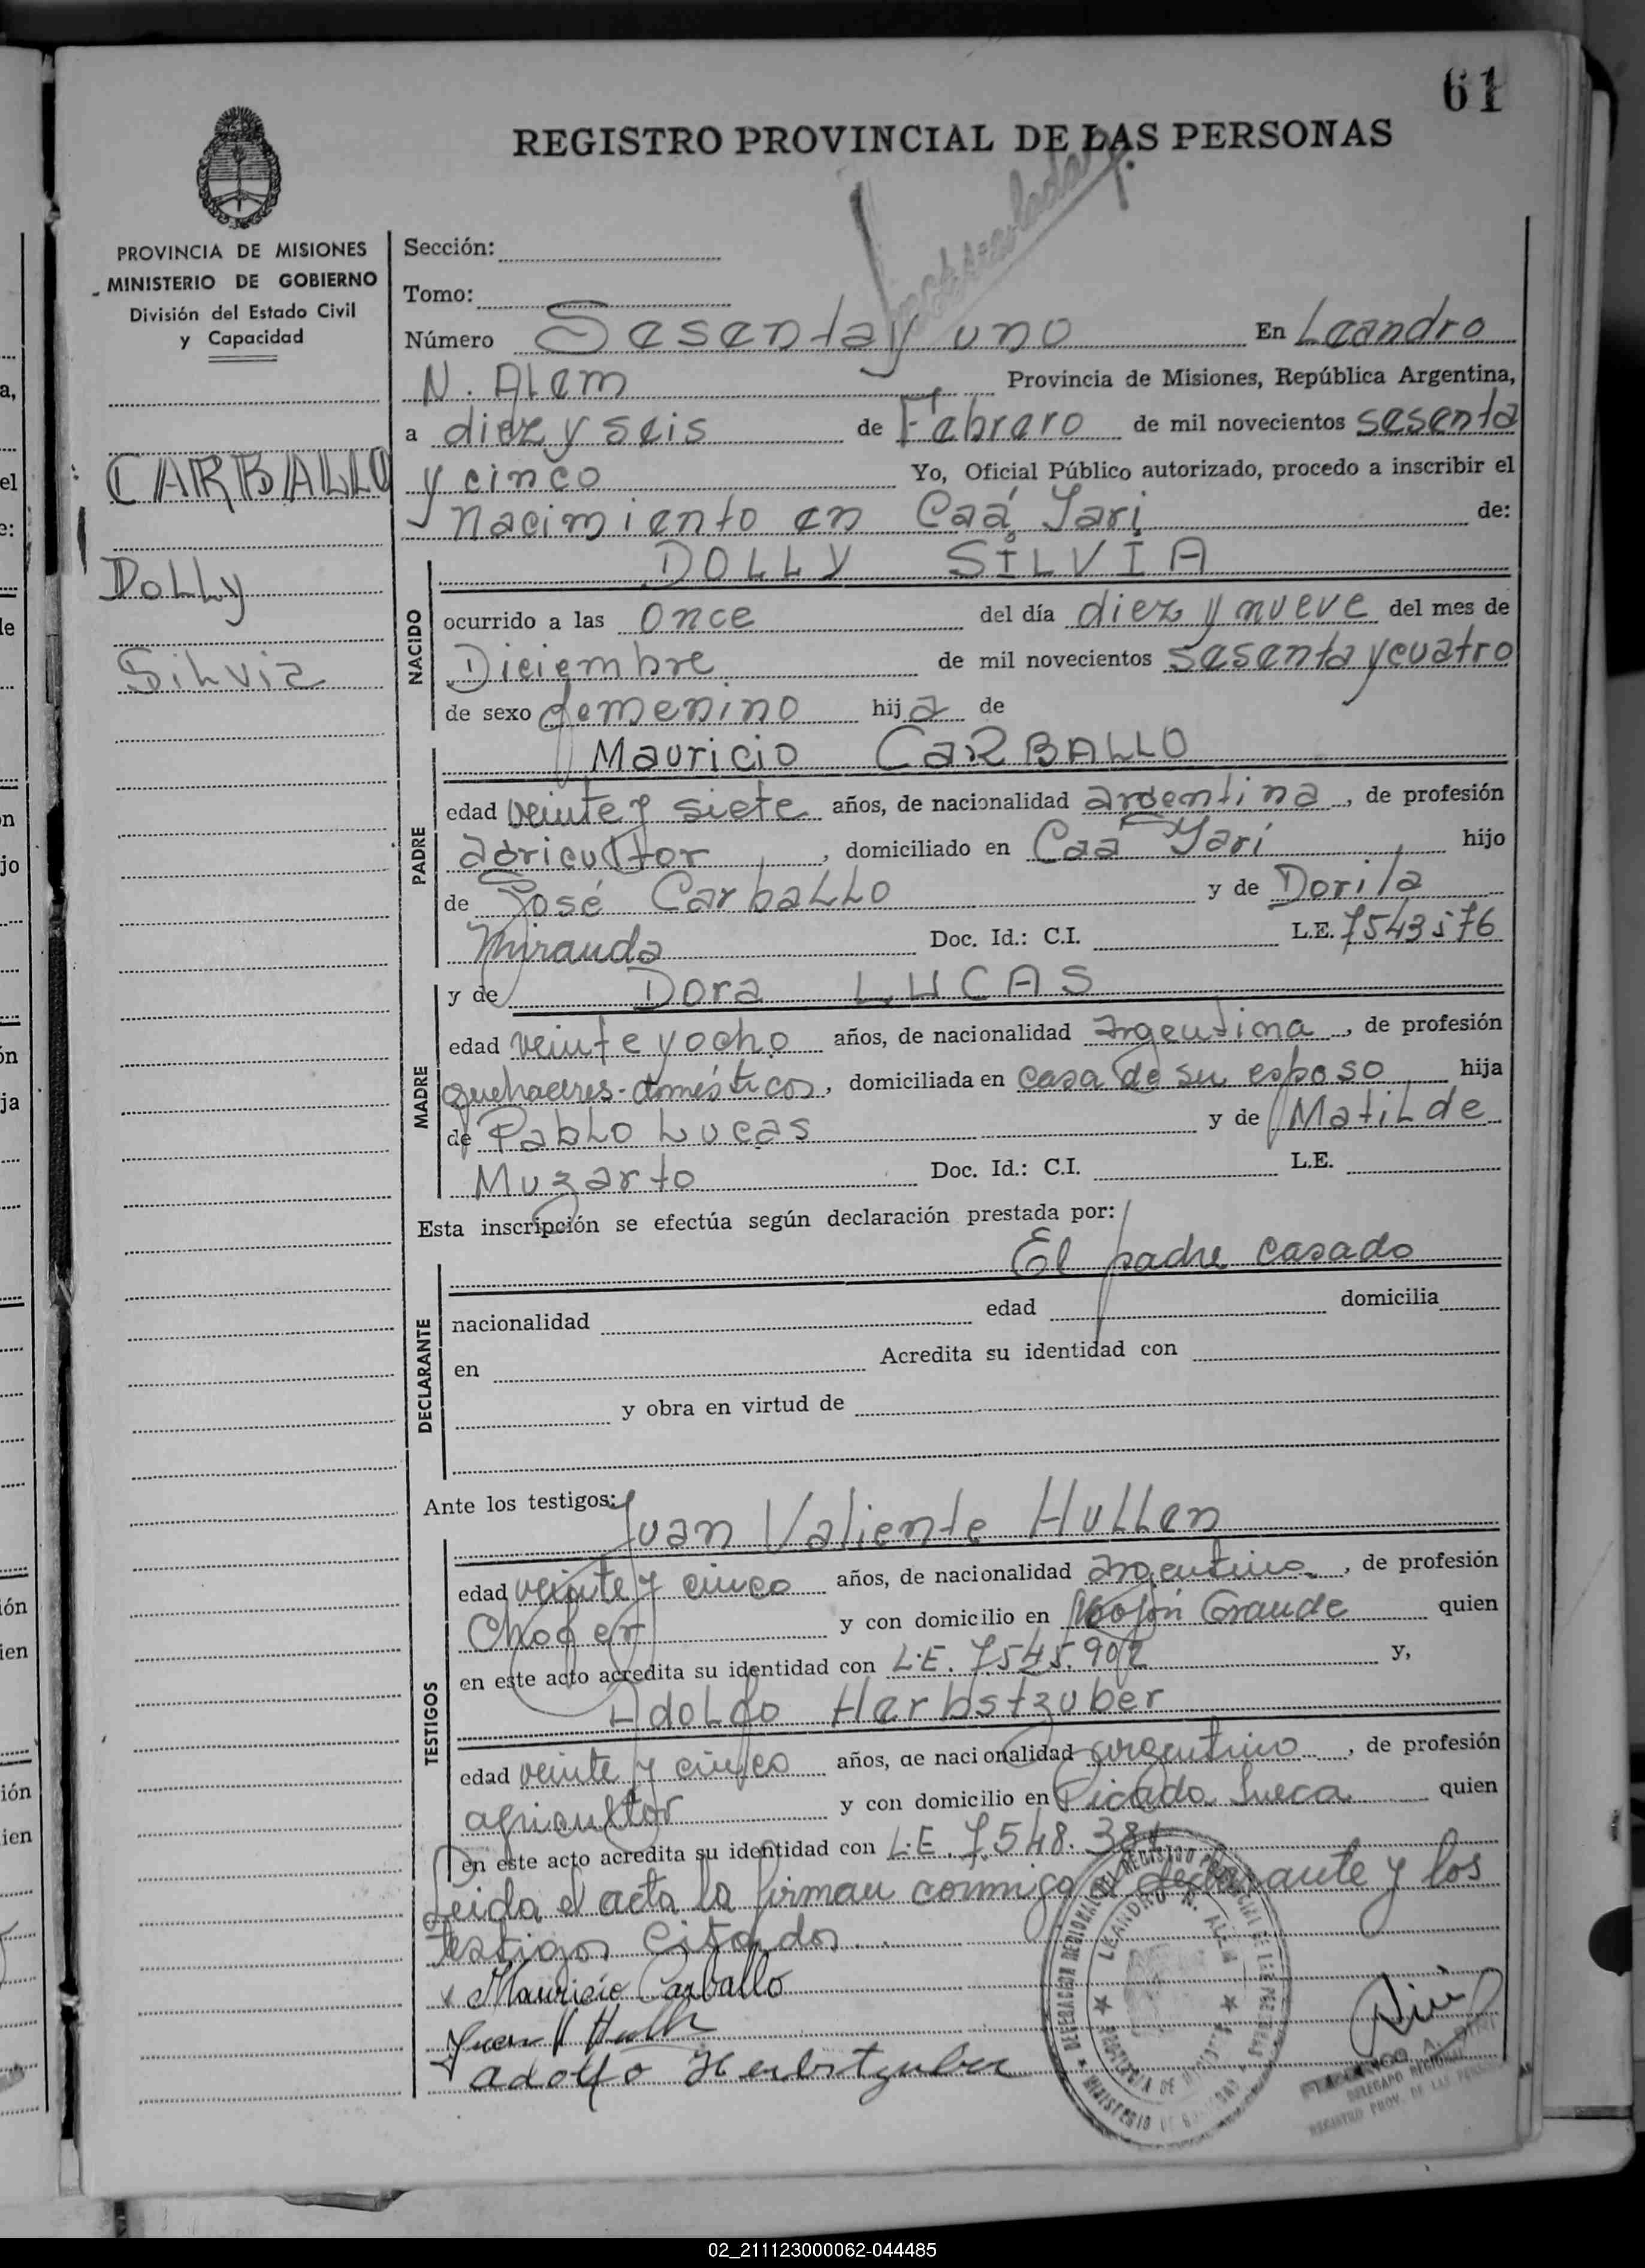 61
REGISTRO PROVINCIAL DE LAS PERSONAS
PROVINCIA DE MISIONES
MINISTERIO DE GOBIERNO
División del Estado Civil
y Capacidad
CARBALLO
Dolly
Silvia
Sección:
Tomo:
Número Sesenta y uno En Leandro
N. Alem Provincia de Misiones, República Argentina,
a diez y seis de Febrero de mil novecientos sesenta
y cinco Yo, Oficial Público autorizado, procedo a inscribir el
nacimiento en Caá Yarí de:
DOLLY SILVIA
NACIDO
ocurrido a las once del día diez y nueve del mes de
Diciembre de mil novecientos sesenta y cuatro
de sexo femenino hija de
Mauricio CARBALLO
PADRE
edad veinte y siete años, de nacionalidad argentina, de profesión
agricultor, domiciliado en Caá Yarí hijo
de José Carballo y de Dorila
Miranda Doc. Id.: C.I. L.E. 7543576
MADRE
y de Dora LUCAS
edad veinte y ocho años, de nacionalidad argentina, de profesión
quehaceres-domésticos, domiciliada en casa de su esposo hija
de Pablo Lucas y de Matilde
Muzarto Doc. Id.: C.I. L.E.
Esta inscripción se efectúa según declaración prestada por:
El padre casado
DECLARANTE
nacionalidad edad domicilia
en Acredita su identidad con
y obra en virtud de
Ante los testigos:
Juan Valiente Hullen
TESTIGOS
edad veinte y cinco años, de nacionalidad argentino, de profesión
Chofer y con domicilio en Mojón Grande quien
en este acto acredita su identidad con L.E. 7.545.902 y,
Adolfo Herbstzuber
edad veinte y cinco años, de nacionalidad argentino, de profesión
agricultor y con domicilio en Picada Sueca quien
en este acto acredita su identidad con L.E. 7.548.381
Leida el acta la firman conmigo el declarante y los
testigos citados.
Mauricio Carballo
Juan V
Adolfo Herbstzuber
DELEGACION REGIONAL DEL REGISTRO PROVINCIAL DE LAS PERSONAS
LEANDRO N. ALEM
PROVINCIA DE MISIONES
MINISTERIO DE GOBIERNO
DELEGADO REGIONAL
REGISTRO PROV. DE LAS PERSONAS
02_211123000062-044485